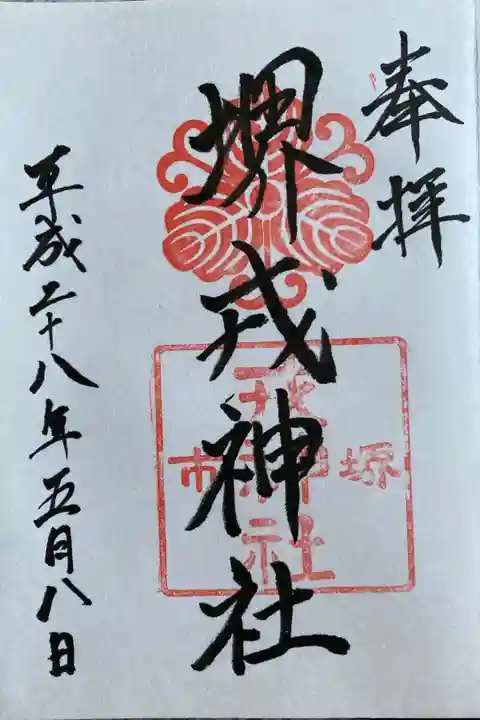 奉拝
堺戎神社
堺市
戎神社
平成二十八年五月八日